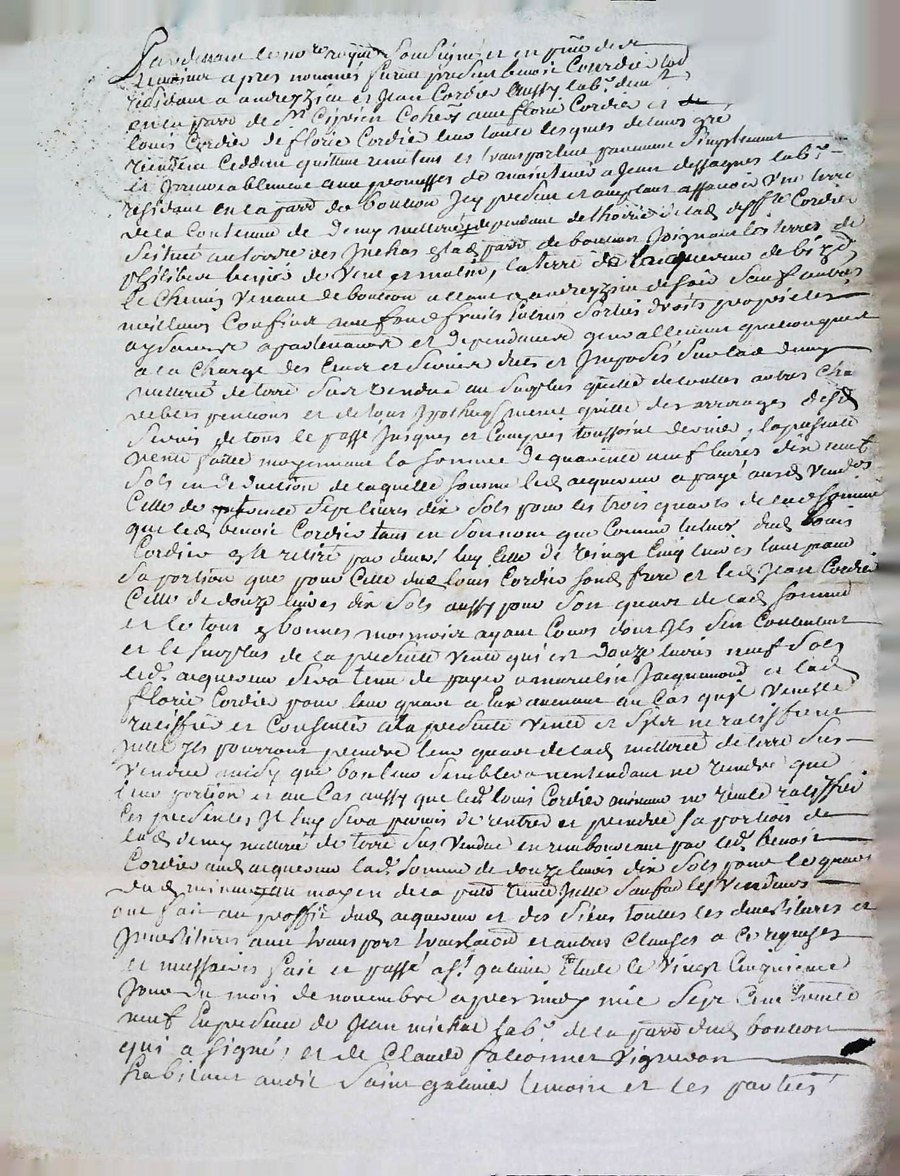 Pardevant le no.re royal Soussigné et en pñce des
temoins apres nommés furent present benoit Courdier lab
residant a andrezieu et Jean Cordier aussy lab.r demt
en la parr de St Ciprien Coher.s avec florie Cordier et
louis Cordier de florie Cordier leur tante lesquels de leurs gré
vendent Ceddent quittent remettent et transportent purement Simplement
et Irrevocablement avec promesses de maintenir a Jean deffarges lab.r
residant en la parr de bouteon Icy present et acceptant assavoir une terre
de la Contenue de demy metterée dependant de l'hoirie de lad deffte Cordier
Scituée au terroir des Juchas & lad parr de bouteon Joignant les terres de
philibert de Vent et matin, la terre de l'acquereur de bize
le Chemin Venant de bouteon allant a andrezieu de soir Sauf autres
meilleurs Confins avec fond fruits Sorties droits proprietés
aysances apartenances et dependances generallement quelconques
a la Charge des Cens et Servis deus et Imposés Sur lad demy
metterée de terre Sus Vendue au Surplus quitte de toutes autres cha
rebtes pentions et de tous Ipotheqs mesme quitte des arrerages desd
Servis de tout le passé Jusques et Compris toussaint dernier, la presente
vente faitte moyennant la Somme de quarente neuf livres dix neuf
Sols en deduction de laquelle Somme led acquereur a payé ausd Vendrs
Celle de trente Sept livres dix Sols pour les trois quarts de lad Somme
que led benoit Cordier tant en Son nom que Comme tuteur dud louis
Cordier a retiré par devers luy Celle de vingt Cinq livres tant pour
Sa portion que pour Celle dud louis Cordier Sond frere et led Jean Cordier
Celle de douze livres dix Sols aussy pour Son quart de lad Somme
et le tout & bonnes monnoies ayant Cours dont Ils Sen Contentent
et le Surplus de la presente Vente qui est douze livres neuf Sols
led. acquereur Sera tenu de payer a Jacquemond et lad
florie Cordier pour leur quart a Eux avenant au Cas quil Veuille
ratiffié et Consentir a la presente Vente et Sils ne ratiffient
Ils pourront prendre leur quart de lad metterée de terre Sus
Vendue ainsy que bon leur Semblera nentendant ne vendre que
leur portion et au Cas aussy que led. louis Cordier mineur ne veuille ratiffier
Ces presentes Il luy Sera permis de rentrer et prendre Sa portion de
lad demy metterée de terre Sus Vendue en remboursant par led. benoit
Cordier aud acquereur lad. Somme de douze livres dix Sols pour le quart
dud mineur au moyen de la pnte vente Iceux Vendeurs
ont fait au proffit dud acquereur et des Siens toutes les devestitures et
Investitures avec transport translation et autres Clauses a Ce requises
et necessaires fait et passé a St. galmier Etude le Vingt Cinquieme
Jour du mois de novembre apres midy mil Sept Cent trente
neuf En presence de Jean michal lab.r de la parr dud bouteon
qui a Signé, et de Claude faconnet Vigneron
habitant audit Saint galmier temoins et les parties